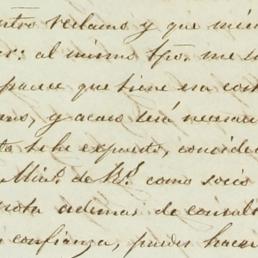 ntro reclamo y que mien
or: al mismo tpo. me s
parece que tiene esa cos
ano, y acaso será necesar
ta te he expuesto, conside
Mico. de Ro. como socio
nota ademas de consul
n confianza, puedes hacer